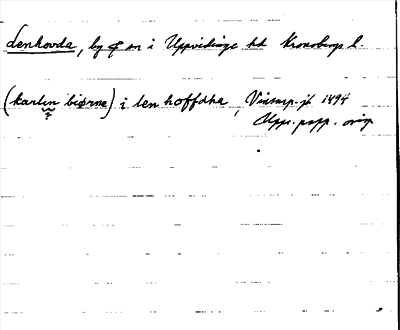 Lenhovda, by o sn i Uppvidinge hd Kronobergs l.
(karlin biørne) i len hoffdha, 1494
? Upps. papp. orig